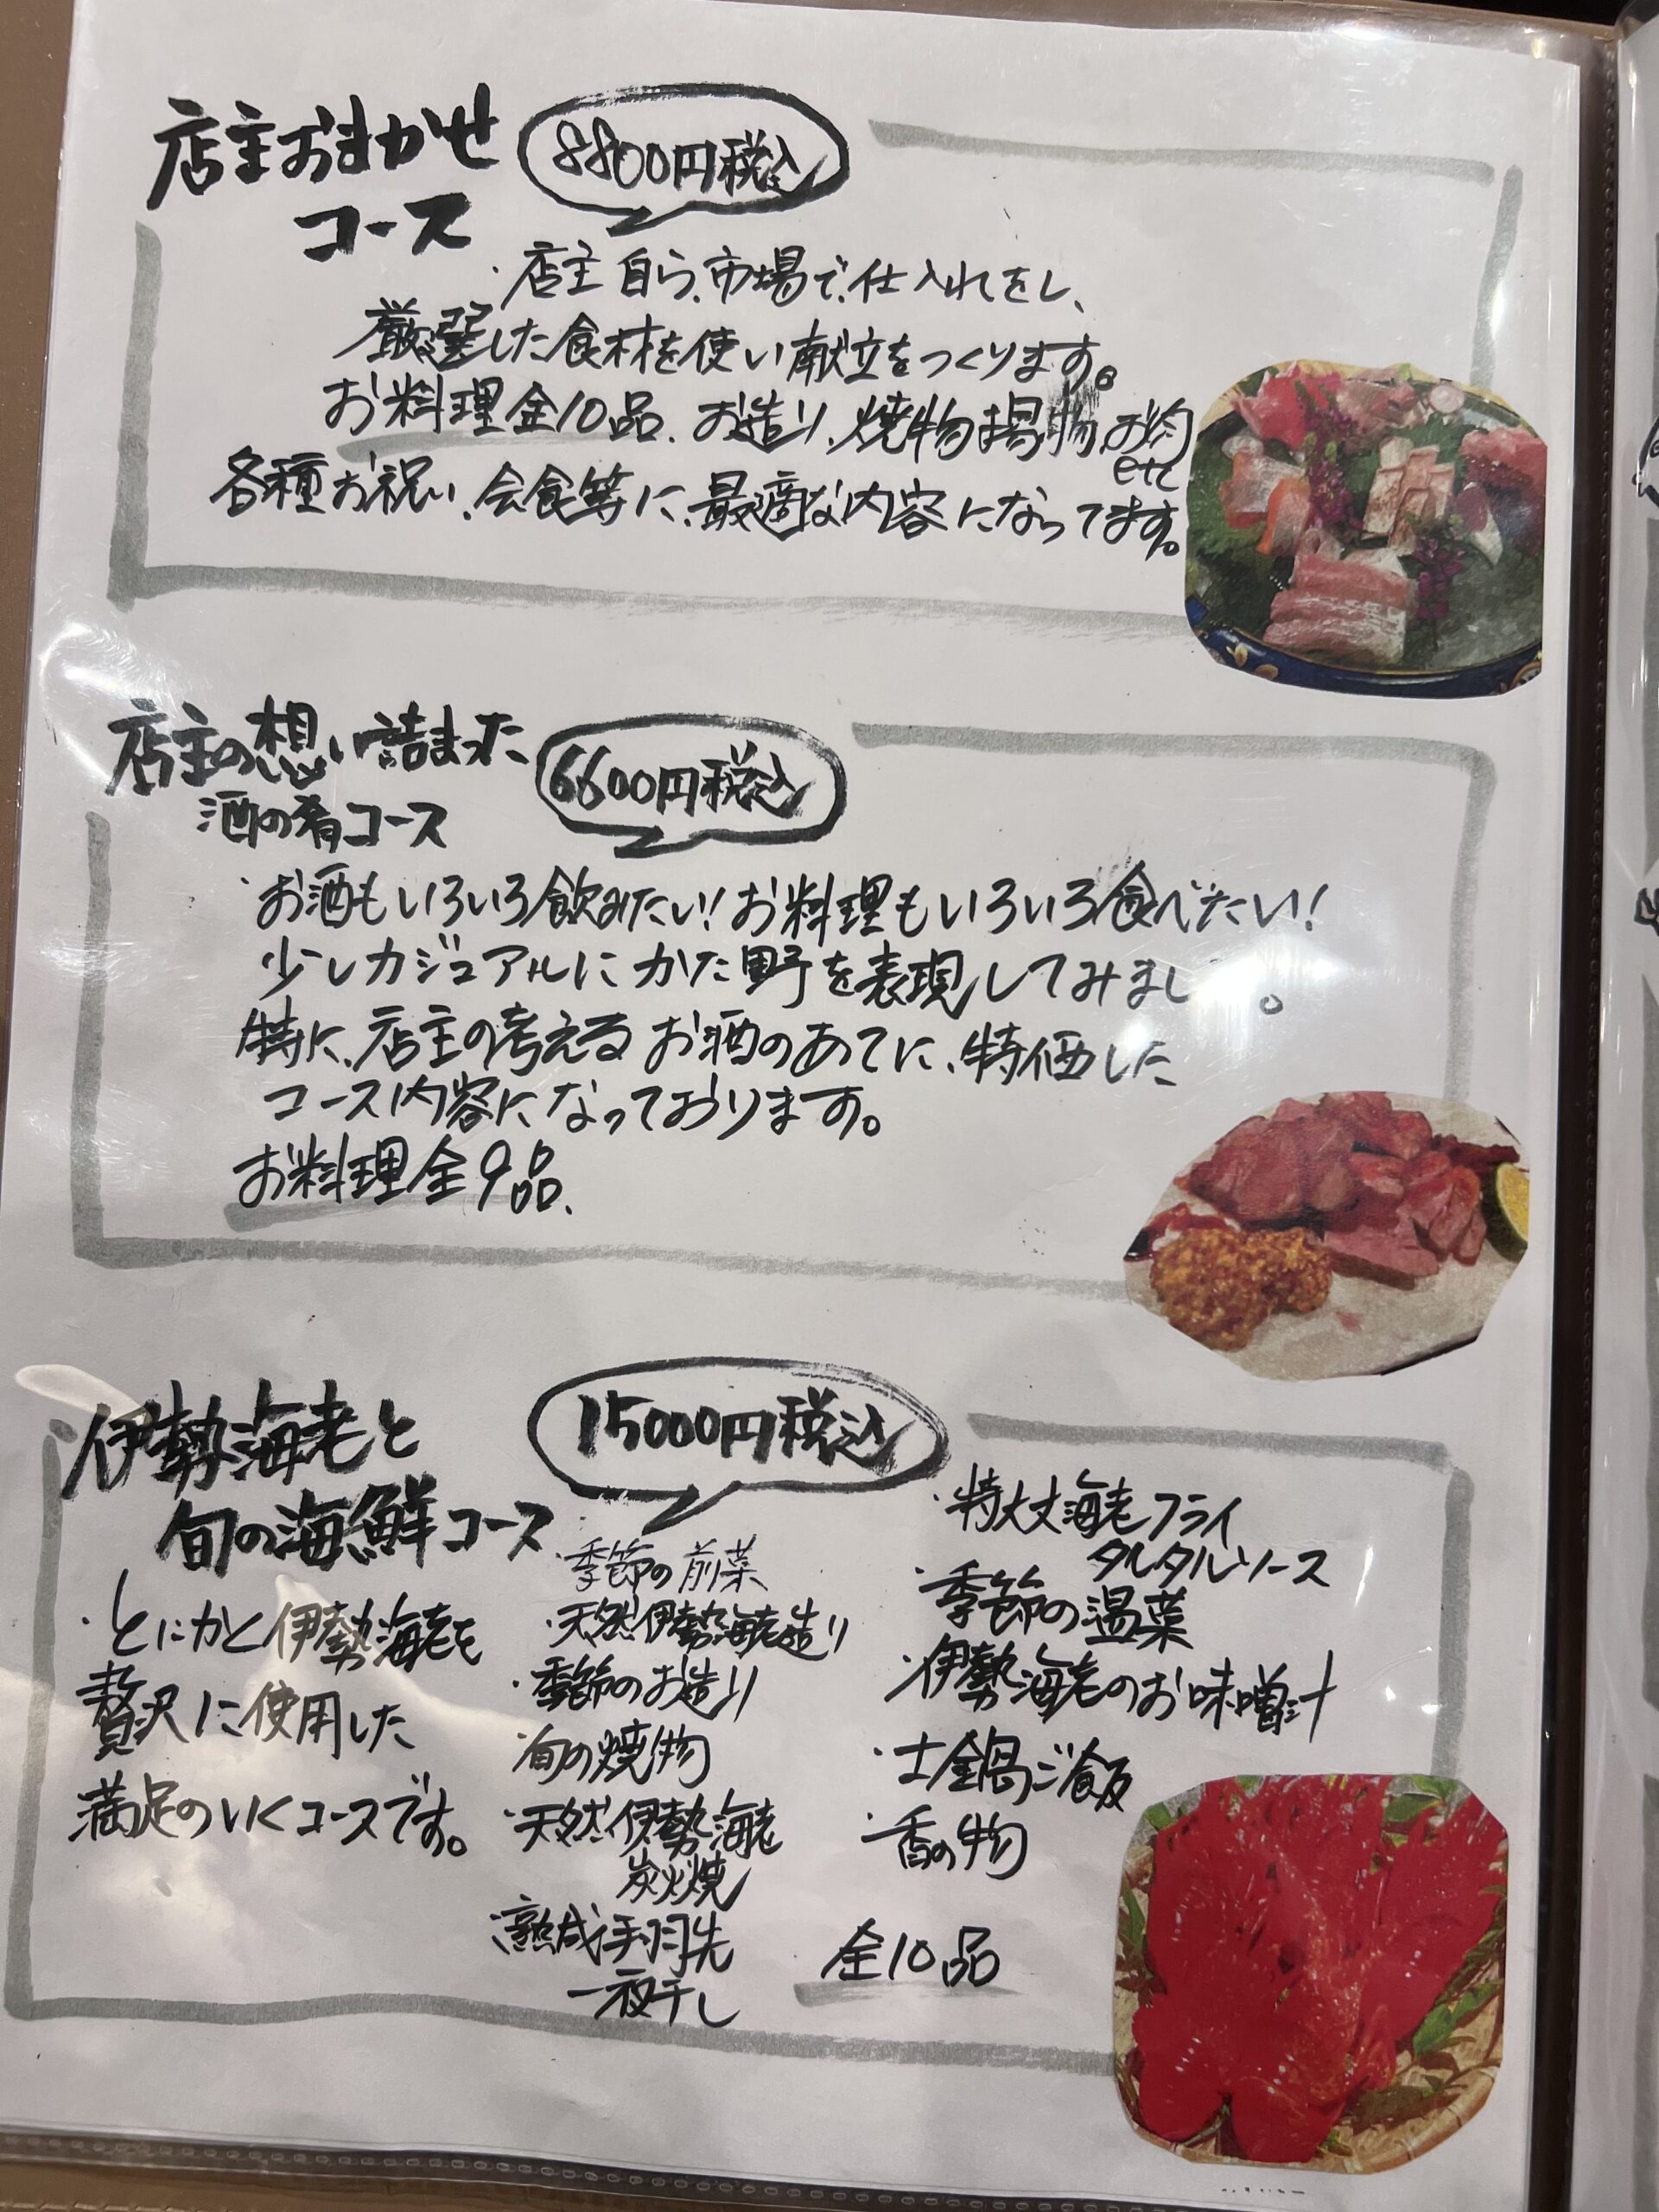 店主おまかせ
コース
8800円税込
・店主自ら、市場で、仕入れをし、
厳選した食材を使い献立をつくります。
お料理全10品、お造り、焼物、揚物、お肉
etc
各種お祝い、会食等に、最適な内容になってます。
店主の想い詰まった
酒の肴コース
6600円税込
・お酒もいろいろ飲みたい!お料理もいろいろ食べたい!
少しカジュアルにかた野を表現してみまし。
特に、店主の考えるお酒のあてに、特価した
コース内容になっております。
お料理全9品、
伊勢海老と
旬の海鮮コース
15000円税込
・とにかく伊勢海老を
贅沢に使用した
満足のいくコースです。
・季節の前菜
・天然伊勢海老造り
・季節のお造り
・旬の焼物
・天然伊勢海老
炭火焼
・熟成手羽先
一夜干し
・特大丈海老フライ
タルタルソース
・季節の温菜
・伊勢海老のお味噌汁
・土鍋ご飯
・香の物
全10品